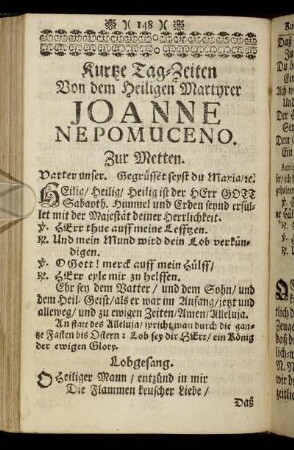 148
Kurtze Tag-Zeiten
Von dem Heiligen Martyrer
JOANNE
NEPOMUCENO.
Zur Metten.
Vatter unser. Gegrüsset seyst du Maria/ꝛc.
HEilig/ Heilig/ Heilig ist der HErr GOTT
Sabaoth. Himmel und Erden seynd erfül-
let mit der Majestät deiner Herrlichkeit.
℣. HErr thue auff meine Lefftzen.
℟. Und mein Mund wird dein Lob verkün-
digen.
℣. O Gott! merck auff mein Hülff/
℟. HErr eyle mir zu helffen.
Ehr sey dem Vatter/ und dem Sohn/ und
dem Heil. Geist/ als er war im Anfang/ jetzt und
alleweg/ und zu ewigen Zeiten/ Amen/ Alleluja.
An statt des Alleluja/ spricht man durch die gan-
tze Fasten bis Ostern: Lob sey dir HErr/ ein König
der ewigen Glory.
Lobgesang.
O Heiliger Mann/ entzünd in mir
Die Flammen keuscher Liebe/
Daß